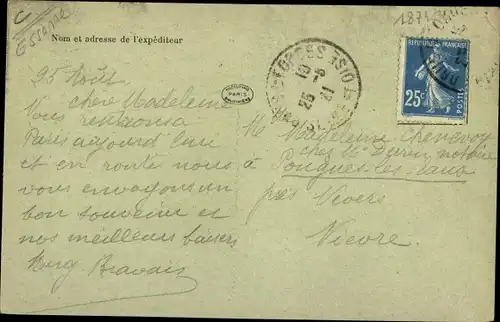 Essonne
1871
Nom et adresse de l'expéditeur
RÉPUBLIQUE FRANÇAISE
25c
POSTES
PARIS
FORGES
S.-ET-OISE
10
25-8
21
25 Août
chère Madeleine
Vous
Paris aujourd'hui
et en route nous
vous envoyons un
bon souvenir et
nos meilleurs baisers
Marg Bravais
Mlle Madeleine Chenevoy
chez Me notaire
à Pougues-les-Eaux
près Nevers
Nièvre